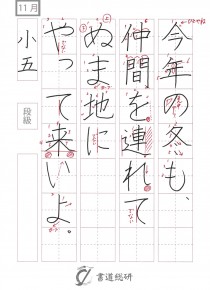 11月
今年の冬も、
仲間を連れて
ぬま地に
やって来いよ。
小五
段級
書道総研